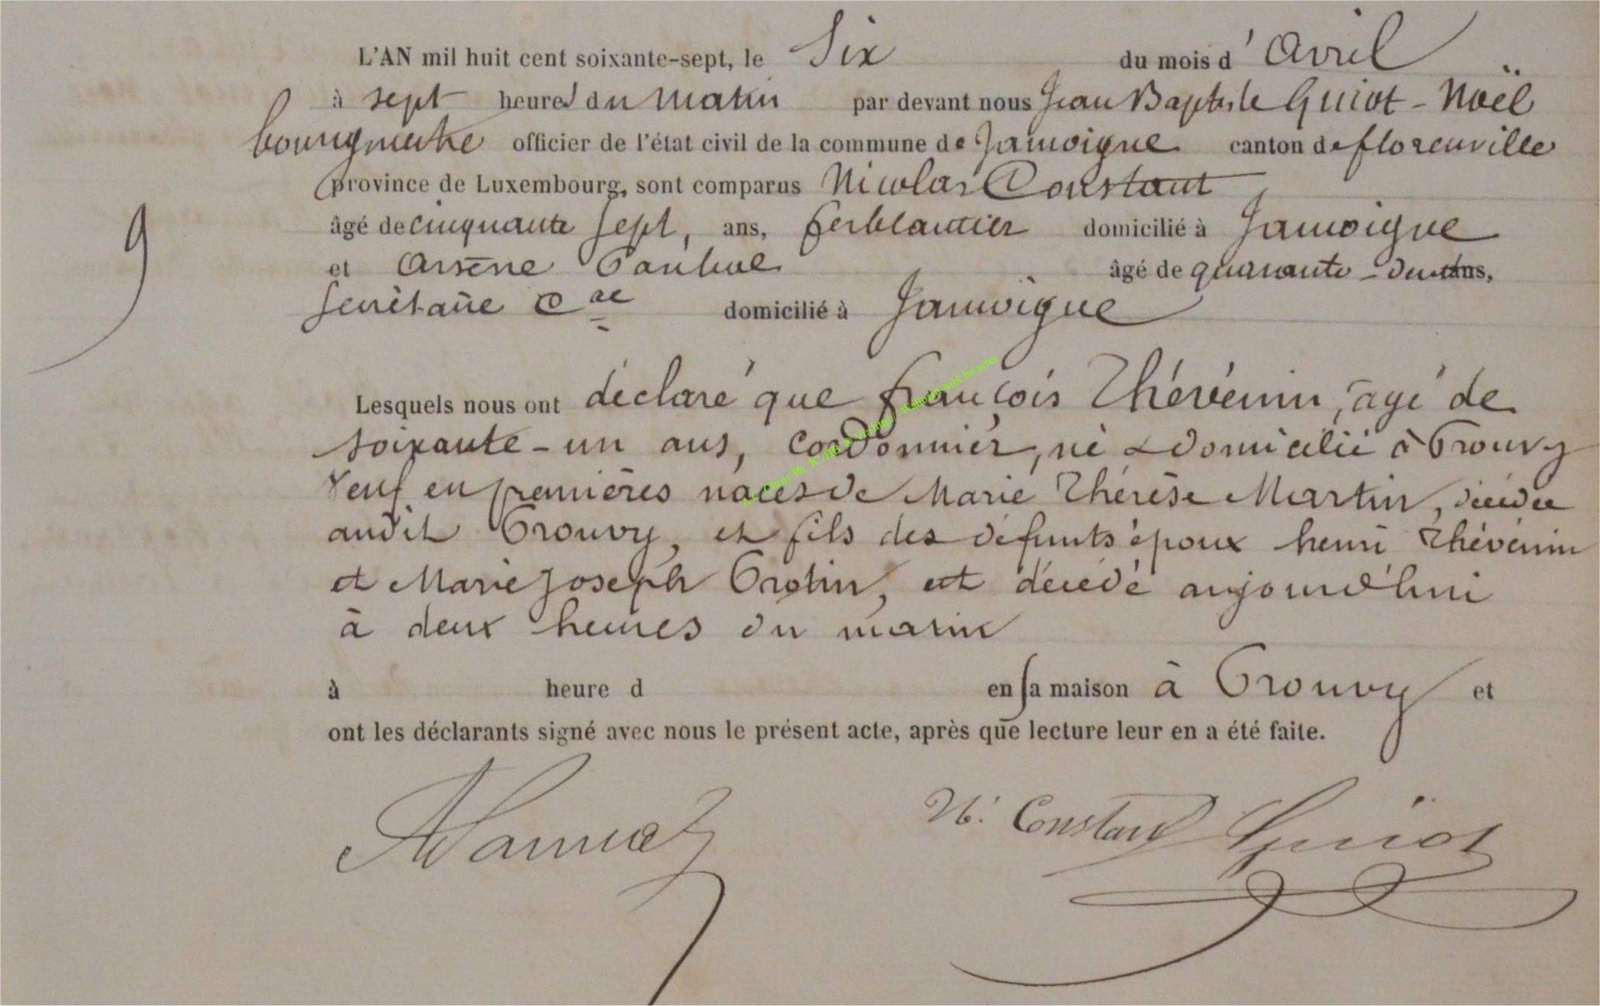 L'AN mil huit cent soixante-sept, le Six du mois d'Avril
à sept heures du matin par devant nous Jean Baptiste Guiot - Noël
bourgmestre officier de l'état civil de la commune de Jamoigne canton de florenville
province de Luxembourg, sont comparus Nicolas Constant
âgé de cinquante sept, ans, ferblantier domicilié à Jamoigne
et Arsène âgé de quarante - deux ans,
secrètaire Cae domicilié à Jamoigne
9
Lesquels nous ont déclaré que françois Thévénin, âgé de
soixante - un ans, Cordonnier, né & domicilié à Prouvy
Veuf en premières noces de Marie Thérèse Martin, décédée
audit Prouvy, et fils des défunts époux henri Thévénin
et Marie Joseph Protin, est décédé aujourd'hui
à deux heures du matin
à heure d en sa maison à Prouvy et
ont les déclarants signé avec nous le présent acte, après que lecture leur en a été faite.
N. Constant Guiot